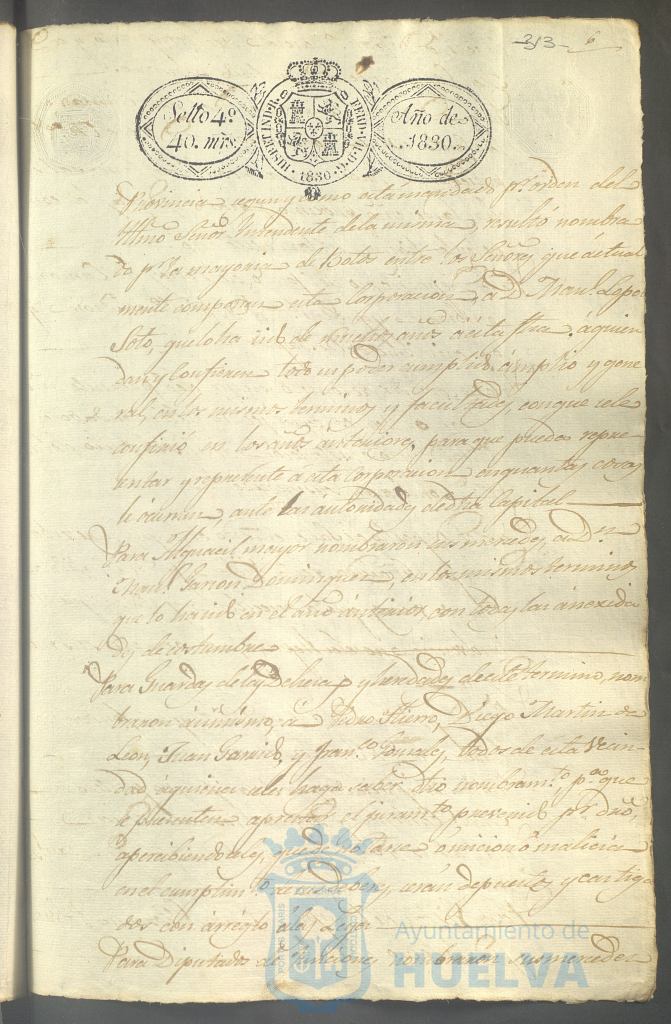 313 6
Sello 4º
40. mrs
HISP. ET IND. R. FERD. VII. D. G. 1830
Año de
1830.
Provincia segun y como esta mandado pr. orden del
Illmo Señor Intendente de la misma, resultó nombra
do pr. la mayoria de botos entre los Señores que actual
mente componen esta Corporacion, a D. Man.l Lopez
Soto, que lo ha sido de muchos años á esta fha. á quien
dan y confieren todo su poder cumplido, amplio y gene
ral, en los mismos terminos y facultades, con que se le
confirió en los años anteriores, para que pueda repre
sentar y represente á esta Corporacion en quantas cosas
le ocurran, ante las autoridades de dha Capital
Para Alguacil mayor nombraron sus mercedes, a D.n
Man.l Garzon Dominguez, en los mismos terminos
que lo ha sido en el año anterior, con todas las anexida
des de costumbre
Para Guardas de las Dehesas y heredades de este termino, nom
braron asimismo, á Pedro Fierro, Diego Martin de
Leon, Juan Garrido, y Fran.co Gonzalez, todos de esta Vecin
dad á quienes se les haga saber dho nombram.to p.a que
se presenten aprestar el juram.to prevenido pr. dro,
apercibiendoles, que de notarse omicion ó malicia
en el cumplim.to de sus deberes, seran depuestos y castiga
dos con arreglo á las Leyes
Para Diputados de funciones nombraron sus mercedes
Ayuntamiento de
HUELVA